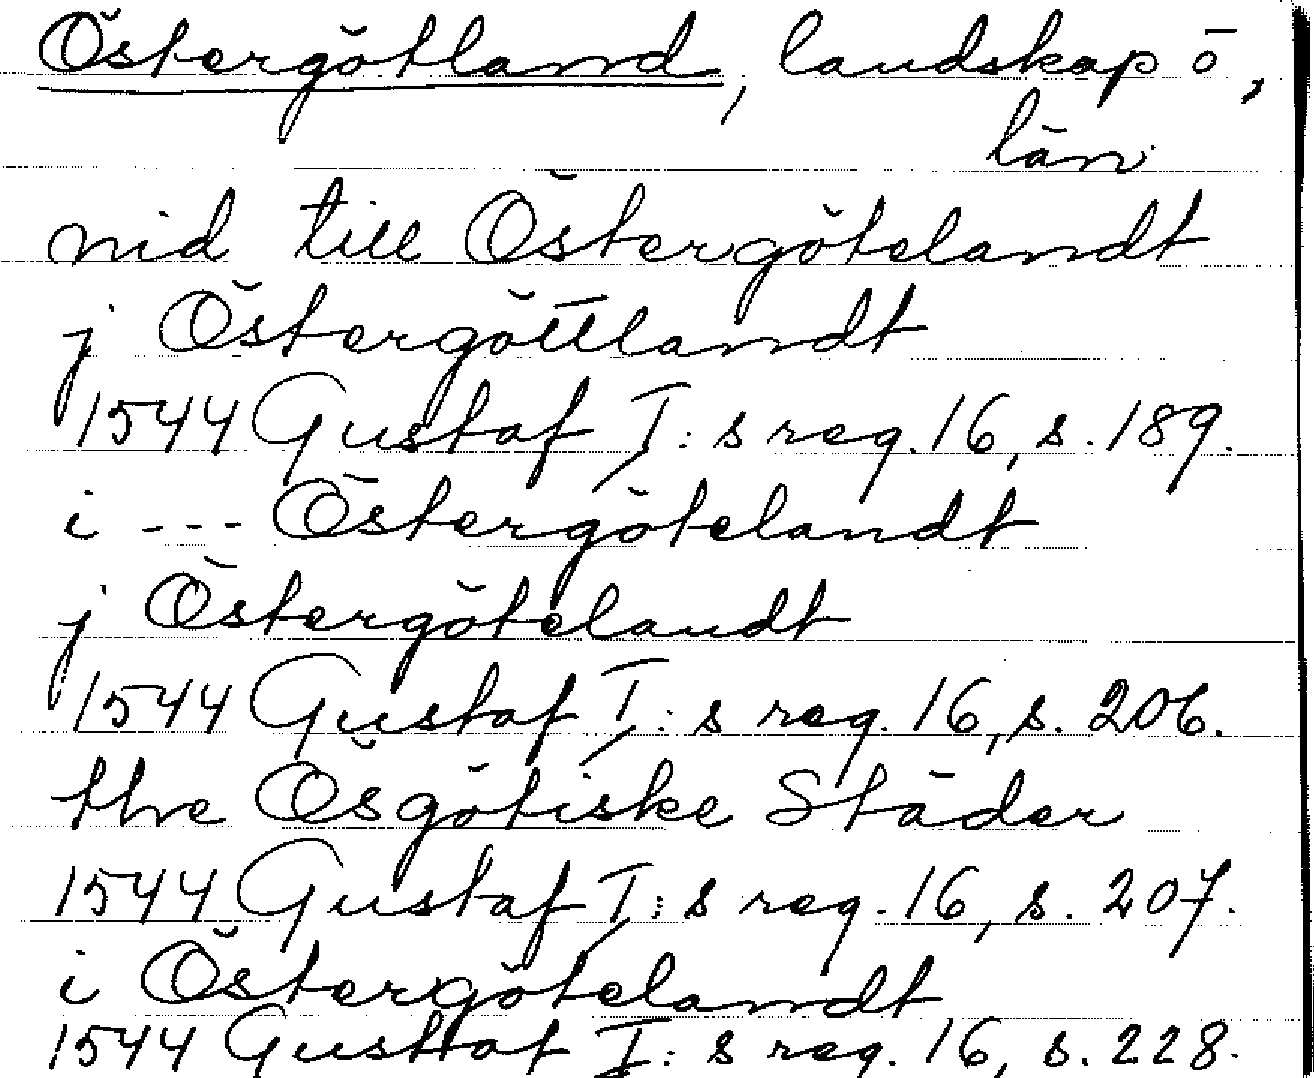 Östergötland, landskap ö,
län
nid till Östergötelandt
j Östergöttlandt
1544 Gustaf I:s reg. 16, s. 189.
i --- Östergötelandt
j Östergötelandt
1544 Gustaf I:s reg. 16, s. 206.
the Ösgötiske Städer
1544 Gustaf I:s reg. 16, s. 207.
i Östergötelandt
1544 Gustaf I:s reg. 16, s. 228.